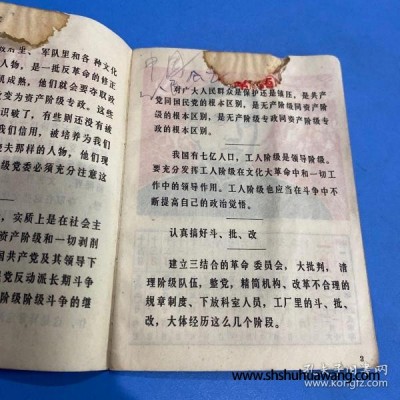 政府里、军队里和各种文化
人物,是一批反革命的修正
机成熟,他们就会要夺取政
变为资产阶级专政。这些
识破了,有些则还没有被
我们信用,被培养为我们
夫那样的人物,他们现
级党委必须充分注意这
,实质上是在社会主
资产阶级和一切剥削
国共产党及其领导下
民党反动派长期斗争
阶级阶级斗争的继
对广大人民群众是保护还是镇压,是共产
党同国民党的根本区别,是无产阶级同资产阶
级的根本区别,是无产阶级专政同资产阶级专
政的根本区别。
我国有七亿人口,工人阶级是领导阶级。
要充分发挥工人阶级在文化大革命中和一切工
作中的领导作用。工人阶级也应当在斗争中不
断提高自己的政治觉悟。
认真搞好斗、批、改
建立三结合的革命委员会,大批判,清
理阶级队伍,整党,精简机构、改革不合理的
规章制度、下放科室人员,工厂里的斗、批、
改,大体经历这么几个阶段。
3
www.shshuhuawang.com
孔夫子旧书网
www.kongfz.com